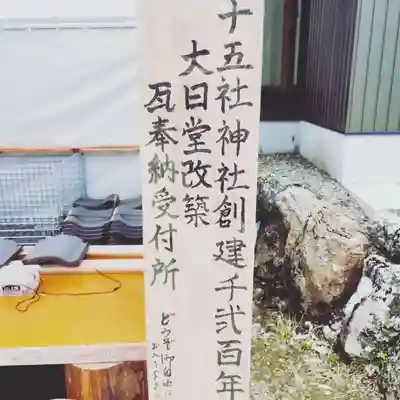 十五社神社創建千弐百年
大日堂改築
瓦奉納受付所
どうぞ御自由に
お入り下さい